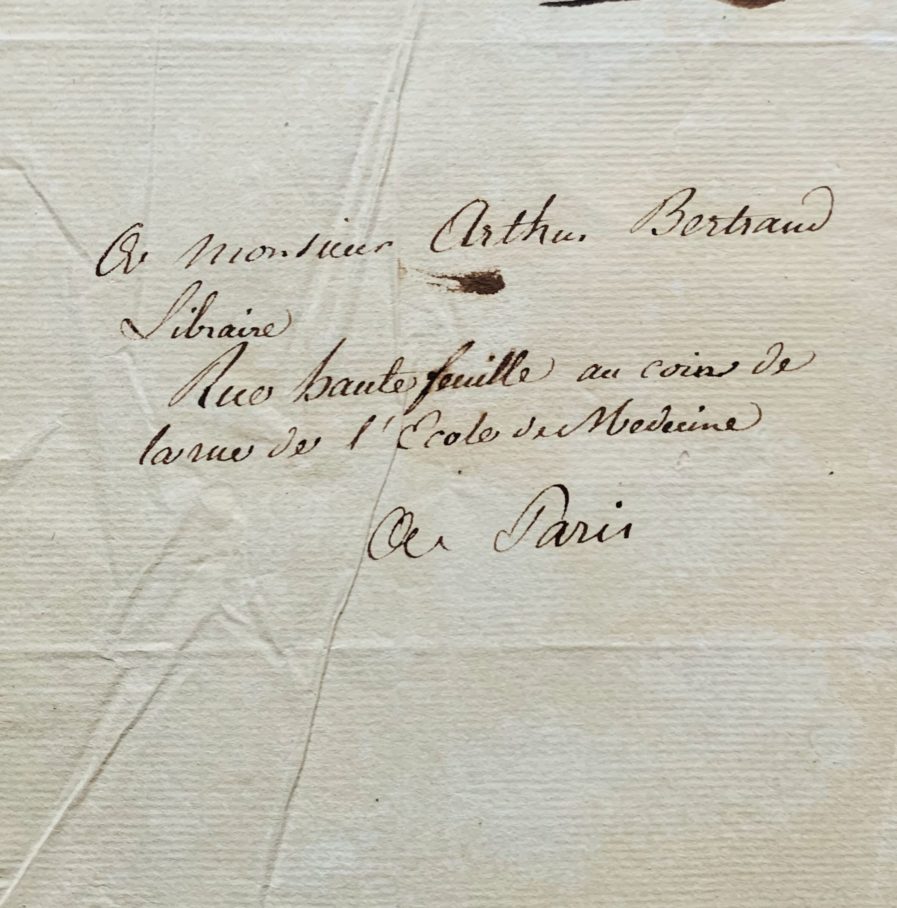 A monsieur Arthus Bertrand
Libraire
Rue haute feuille au coin de
la rue de l'Ecole de Medecine
A Paris